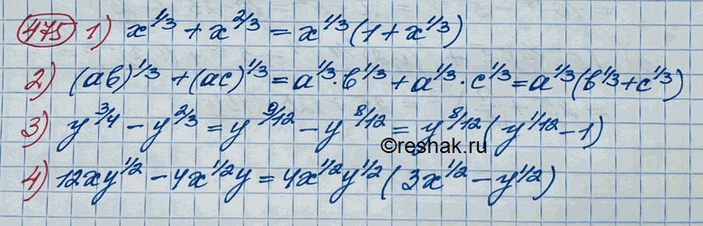 475 1) x^1/3 + x^2/3 = x^1/3 (1 + x^1/3)
2) (ab)^1/3 + (ac)^1/3 = a^1/3 · b^1/3 + a^1/3 · c^1/3 = a^1/3 (b^1/3 + c^1/3)
3) y^3/4 − y^2/3 = y^9/12 − y^8/12 = y^8/12 (y^1/12 − 1)
©reshak.ru
4) 12xy^1/2 − 4x^1/2 y = 4x^1/2 y^1/2 (3x^1/2 − y^1/2)